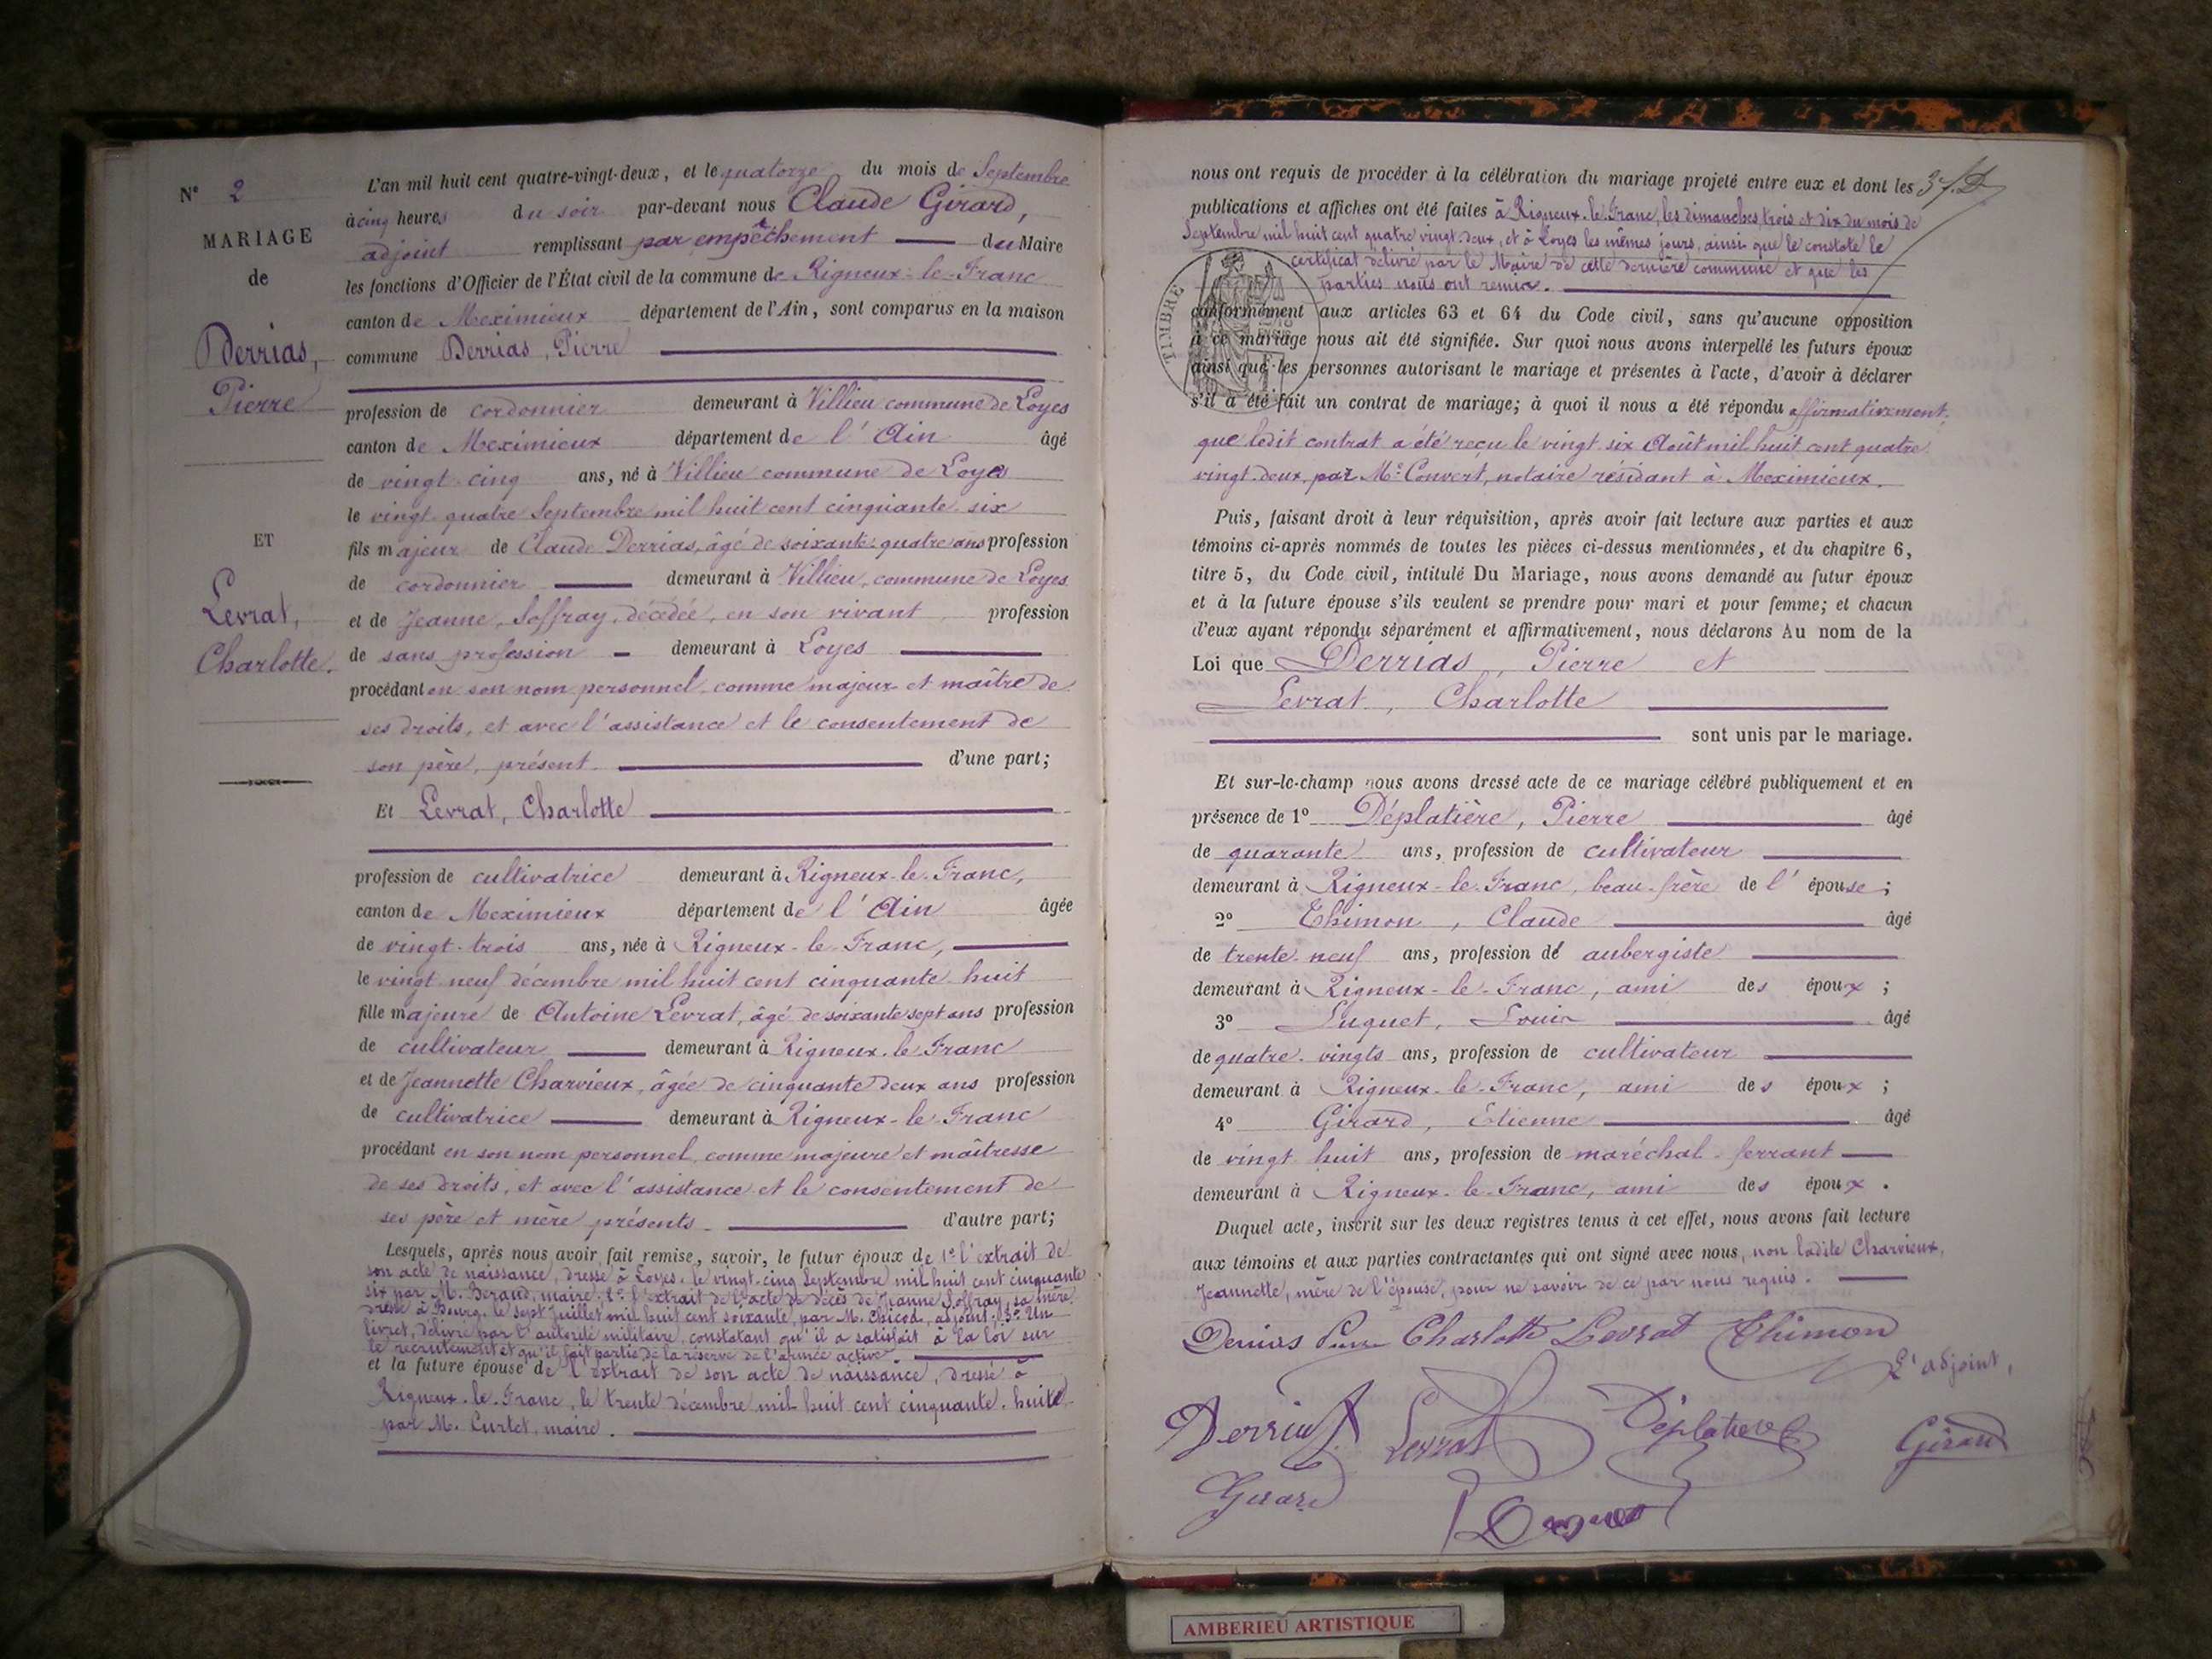 N° 2
MARIAGE
de
Derrias,
Pierre
ET
Levrat,
Charlotte.
L'an mil huit cent quatre-vingt-deux, et le quatorze du mois de Septembre
à cinq heures du soir par-devant nous Claude Girard,
adjoint remplissant par empêchement du Maire
les fonctions d'Officier de l'État civil de la commune de Rigneux-le-Franc
canton de Meximieux département de l'Ain, sont comparus en la maison
commune Derrias, Pierre
profession de cordonnier demeurant à Villieu commune de Loyes
canton de Meximieux département de l'Ain âgé
de vingt-cinq ans, né à Villieu commune de Loyes
le vingt-quatre Septembre mil huit cent cinquante-six
fils majeur de Claude Derrias, âgé de soixante-quatre ans profession
de cordonnier demeurant à Villieu, commune de Loyes
et de Jeanne, Soffray, décédée, en son vivant profession
de sans profession demeurant à Loyes
procédant en son nom personnel, comme majeur et maître de
ses droits, et avec l'assistance et le consentement de
son père, présent d'une part;
Et Levrat, Charlotte
profession de cultivatrice demeurant à Rigneux-le-Franc,
canton de Meximieux département de l'Ain âgée
de vingt-trois ans, née à Rigneux-le-Franc,
le vingt-neuf décembre mil huit cent cinquante-huit
fille majeure de Antoine Levrat, âgé de soixante sept ans profession
de cultivateur demeurant à Rigneux-le-Franc
et de Jeannette Charvieux, âgée de cinquante deux ans profession
de cultivatrice demeurant à Rigneux-le-Franc
procédant en son nom personnel, comme majeure et maîtresse
de ses droits, et avec l'assistance et le consentement de
ses père et mère présents. d'autre part;
Lesquels, après nous avoir fait remise, savoir, le futur époux de 1° l'extrait de
son acte de naissance, dressé à Loyes, le vingt-cinq Septembre mil huit cent cinquante
six par M. Beraud, maire. 2° l'extrait de l'acte de décès de Jeanne Soffray, sa mère,
dressé à Bourg, le sept Juillet mil huit cent soixante, par M. Chicod, adjoint. 3° Un
livret, délivré par l'autorité militaire, constatant qu'il a satisfait à la loi sur
le recrutement et qu'il fait partie de la réserve de l'armée active.
et la future épouse de l'extrait de son acte de naissance, dressé à
Rigneux-le-Franc, le trente décembre mil huit cent cinquante-huit
par M. Curtet, maire.
nous ont requis de procéder à la célébration du mariage projeté entre eux et dont les
publications et affiches ont été faites à Rigneux-le-Franc, les dimanches trois et dix du mois de
Septembre mil huit cent quatre vingt-deux, et à Loyes les mêmes jours, ainsi que le constate le
certificat délivré par le Maire de cette dernière commune et que les
parties nous ont remis.
TIMBRE
conformément aux articles 63 et 64 du Code civil, sans qu'aucune opposition
à ce mariage nous ait été signifiée. Sur quoi nous avons interpellé les futurs époux
ainsi que les personnes autorisant le mariage et présentes à l'acte, d'avoir à déclarer
s'il a été fait un contrat de mariage; à quoi il nous a été répondu affirmativement,
que ledit contrat a été reçu le vingt six Août mil huit cent quatre
vingt-deux, par Me Convert, notaire résidant à Meximieux.
Puis, faisant droit à leur réquisition, après avoir fait lecture aux parties et aux
témoins ci-après nommés de toutes les pièces ci-dessus mentionnées, et du chapitre 6,
titre 5, du Code civil, intitulé Du Mariage, nous avons demandé au futur époux
et à la future épouse s'ils veulent se prendre pour mari et pour femme; et chacun
d'eux ayant répondu séparément et affirmativement, nous déclarons Au nom de la
Loi que Derrias, Pierre et
Levrat, Charlotte
sont unis par le mariage.
Et sur-le-champ nous avons dressé acte de ce mariage célébré publiquement et en
présence de 1° Déplatière, Pierre âgé
de quarante ans, profession de cultivateur
demeurant à Rigneux-le-Franc, beau-frère de l'épouse;
2° Thimon, Claude âgé
de trente-neuf ans, profession de aubergiste
demeurant à Rigneux-le-Franc, ami des époux;
3° Luquet, Louis âgé
de quatre-vingts ans, profession de cultivateur
demeurant à Rigneux-le-Franc, ami des époux;
4° Girard, Etienne âgé
de vingt-huit ans, profession de maréchal-ferrant
demeurant à Rigneux-le-Franc, ami des époux.
Duquel acte, inscrit sur les deux registres tenus à cet effet, nous avons fait lecture
aux témoins et aux parties contractantes qui ont signé avec nous, non ladite Charvieux,
Jeannette, mère de l'épouse, pour ne savoir de ce par nous requis.
Charlotte Levrat Thimon
L'adjoint,
Levrat Girard
Girard
AMBERIEU ARTISTIQUE